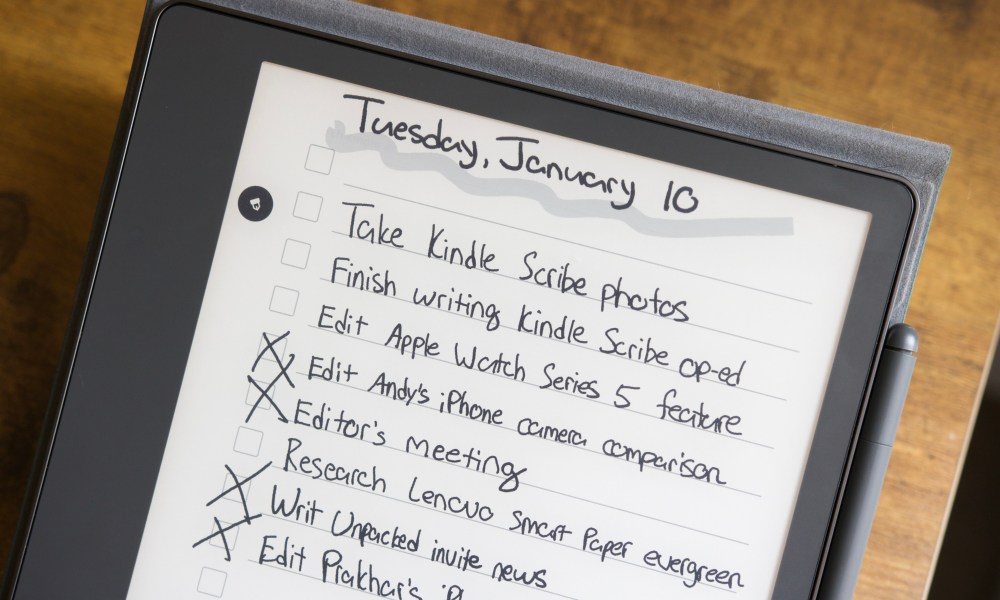 Tuesday, January 10
Take Kindle Scribe photos
Finish writing Kindle Scribe op-ed
Edit Apple Watch Series 5 feature
Edit Andy's iPhone camera comparison
Editor's meeting
Research Lenovo Smart Paper evergreen
Writ Unpacked invite news
Edit Prakhar's